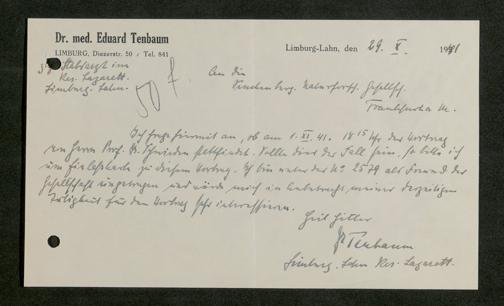 Dr. med. Eduard Tenbaum
LIMBURG, Diezerstr. 50 / Tel. 841
Limburg-Lahn, den 29. X. 1941
Stabsarzt im
Res. Lazarett.
Limburg. Lahn.
An die
Senckenberg. Naturforsch. Gesellsch.
Frankfurt a. M.
Ich frage hiermit an, ob am 1. XI. 41. 18 15 Uhr der Vortrag
von Herrn Prof. Dr. stattfindet. Sollte dies der Fall sein, so bitte ich
um Einlasskarte zu diesem Vortrag. Ich bin unter der No 2579 als Freund der
Gesellschaft eingetragen, und würde mich in Anbetracht meiner derzeitigen
Tätigkeit für den Vortrag sehr interessieren.
Heil Hitler
Dr Tenbaum
Limburg. Lahn Res. Lazarett.